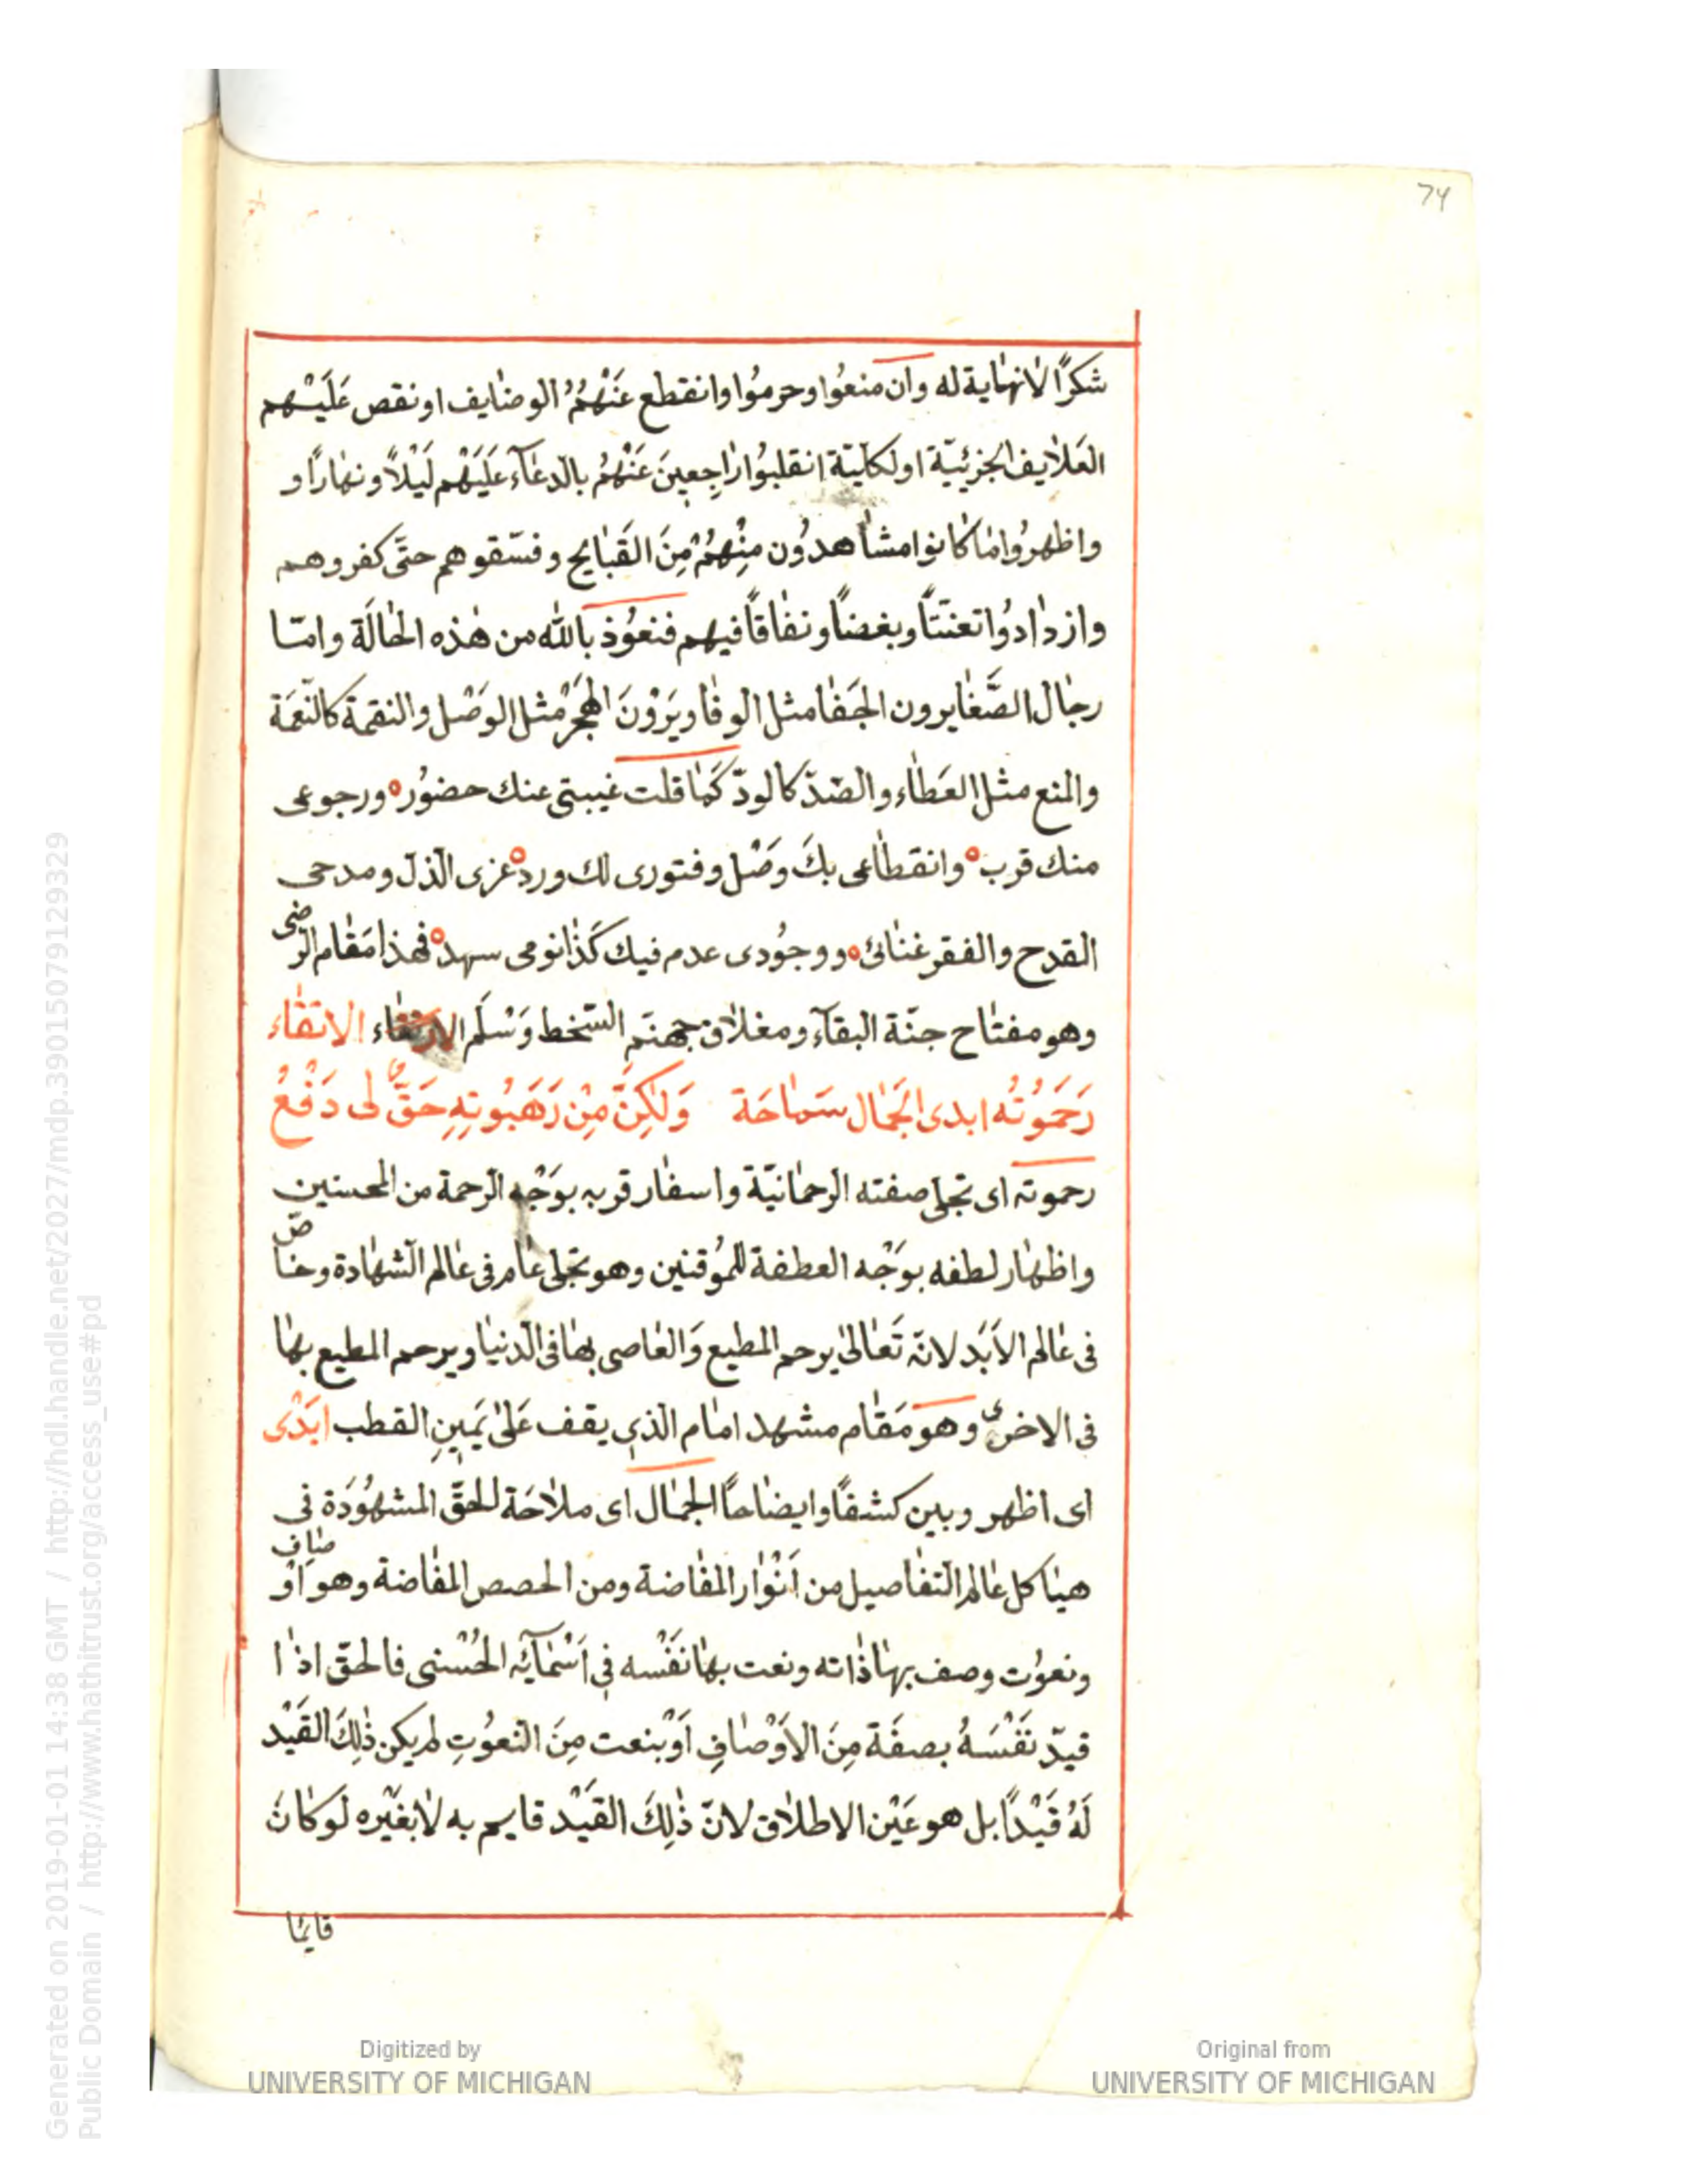 74
شكرًا لانهاية له وان منعُوا وحرمُوا وانقطع عَنْهُمُ الوضايف او نقص عَلَيْهم
العَلايف الجزئيّة او لكليّة انقلبُوا راجِعينَ عَنْهُمُ بالدعآء عَلَيَهْم لَيْلاً ونهارًا و
واظهرُوا ما كانوا مشاهدوُن مِنْهُمْ مِنَ القَبَايح وفسّقوهم حتَّى كفروهم
وازدادوُا تعنتّاً وبغضاً ونفاقاً فيهم فنعوُذ بالله من هذه الحالَة وامّا
رجال الصَّفا يرون الجَفا مثل الوفا ويَرَوْنَ الهجرْ مثل الوَصْل والنقمة كالنّعَمَة
والمنع مثل العَطاء والصّدّ كالودّ كَما قلت غيبتى عنك حضوُر ورجوعى
منك قرب وانقطاعى بكَ وصَْل وفتورى لك ورد عزى الذل ومدحى
القدح والفقر غنائ ووجوُدى عدم فيك كَذا نومى سهد فهذا مَقام الرضى
وهو مفتاح جنّة البقآء ومغلاق جهنّم السّخط وَسُلَم الارتقاء الاتقاء
رَحَمُوتُه ابدى الجَمال سَماحَة وَلكِنَّ مِنْ رَهَبُوتِهِ حَقَّ لى دَفْعُ
رحموته اى تجلى صفته الرحمانيّة واسفار قربه بوَجْه الرحمة من المحسنين
واظهار لطفه بوَجْه العطفة للمُوقنين وهو تجلى عام فى عالم الشهادة وخاصّ
فى عالم الاَبَد لانّه تَعالىٰ يرحم المطيع وَالعاصى بها فى الدنيا ويرحم المطيع بها
فى الاخرى وهو مَقام مشهد امام الذى يقف عَلىٰ يَمينِ القطب ابَدْى
اى اظهر وبين كشفًا وايضاحاً الجمال اى ملاحَة للحقّ المشهوُدَة فى
هياكل عالم التفاصيل من اَنْوار المفاضة ومن الحصص المفاضة وهو اوصاف
ونعوُت وصف بها ذاته ونعت بها نَفْسه فى اَسْمآئه الحُسْنى فالحقّ اذا
قيدّ نَفْسَهُ بصفَة مِنَ الاَوْصافِ اَوْ بنعت مِنَ النعوُتِ لم يكن ذلِكَ القَيْد
لَهُ قَيْداً بل هو عَيْن الاطلاق لانّ ذلِكَ القَيْد قايم به لا بغَيْره لَو كانَ
قايمًا
Generated on 2019-01-01 14:38 GMT / http://hdl.handle.net/2027/mdp.39015079129329
Public Domain / http://www.hathitrust.org/access_use#pd
Digitized by
UNIVERSITY OF MICHIGAN
Original from
UNIVERSITY OF MICHIGAN